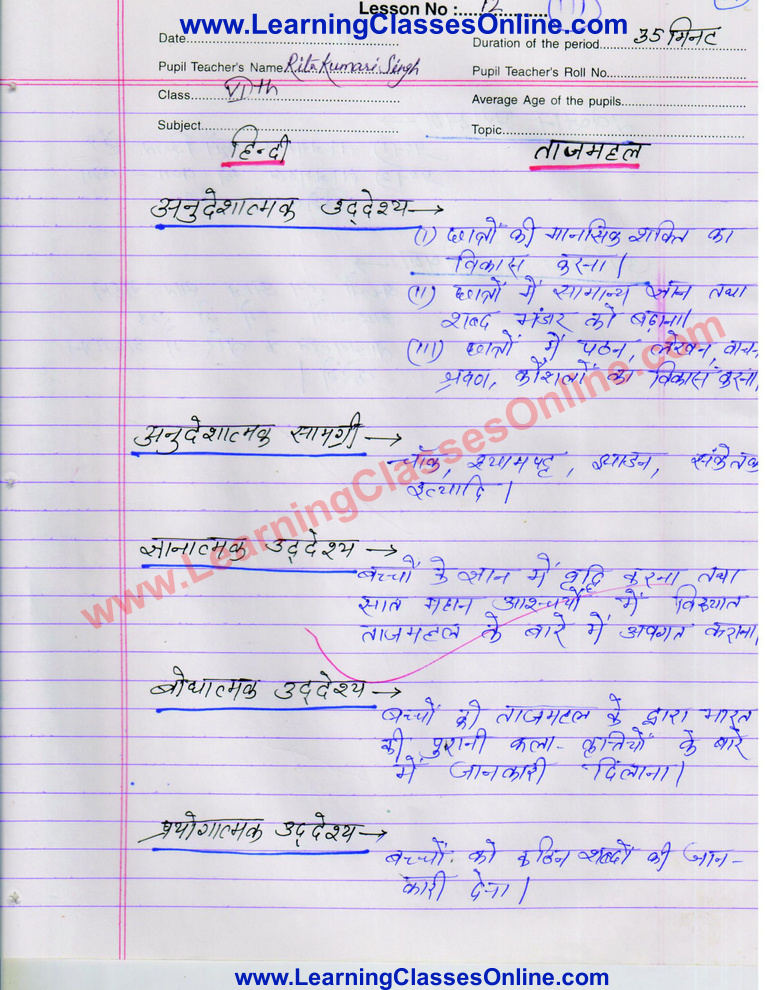 www.LearningClassesOnline.com
Lesson No : 12 (III)
Date
Duration of the period 35 मिनट
Pupil Teacher's Name Rita Kumari Singh
Pupil Teacher's Roll No.
Class VIIth
Average Age of the pupils
Subject हिन्दी
Topic ताजमहल
अनुदेशात्मक उद्देश्य →
(i) छात्रों की मानसिक शक्ति का
विकास करना।
(ii) छात्रों में सामान्य ज्ञान तथा
शब्द भंडार को बढ़ाना।
(iii) छात्रों में पठन, लेखन, वाचन
श्रवण, कौशलों का विकास करना।
अनुदेशात्मक सामग्री →
चॉक, श्यामपट्ट, झाडन, संकेतक
इत्यादि।
ज्ञानात्मक उद्देश्य →
बच्चों के ज्ञान में वृद्धि करना तथा
सात महान आश्चर्यों में विख्यात
ताजमहल के बारे में अवगत कराना।
बोधात्मक उद्देश्य →
बच्चों को ताजमहल के द्वारा भारत
की पुरानी कला-कृत्तियों के बारे
में जानकारी दिलाना।
प्रयोगात्मक उद्देश्य →
बच्चों को कठिन शब्दों की जान-
कारी देना।
www.LearningClassesOnline.com
www.LearningClassesOnline.com